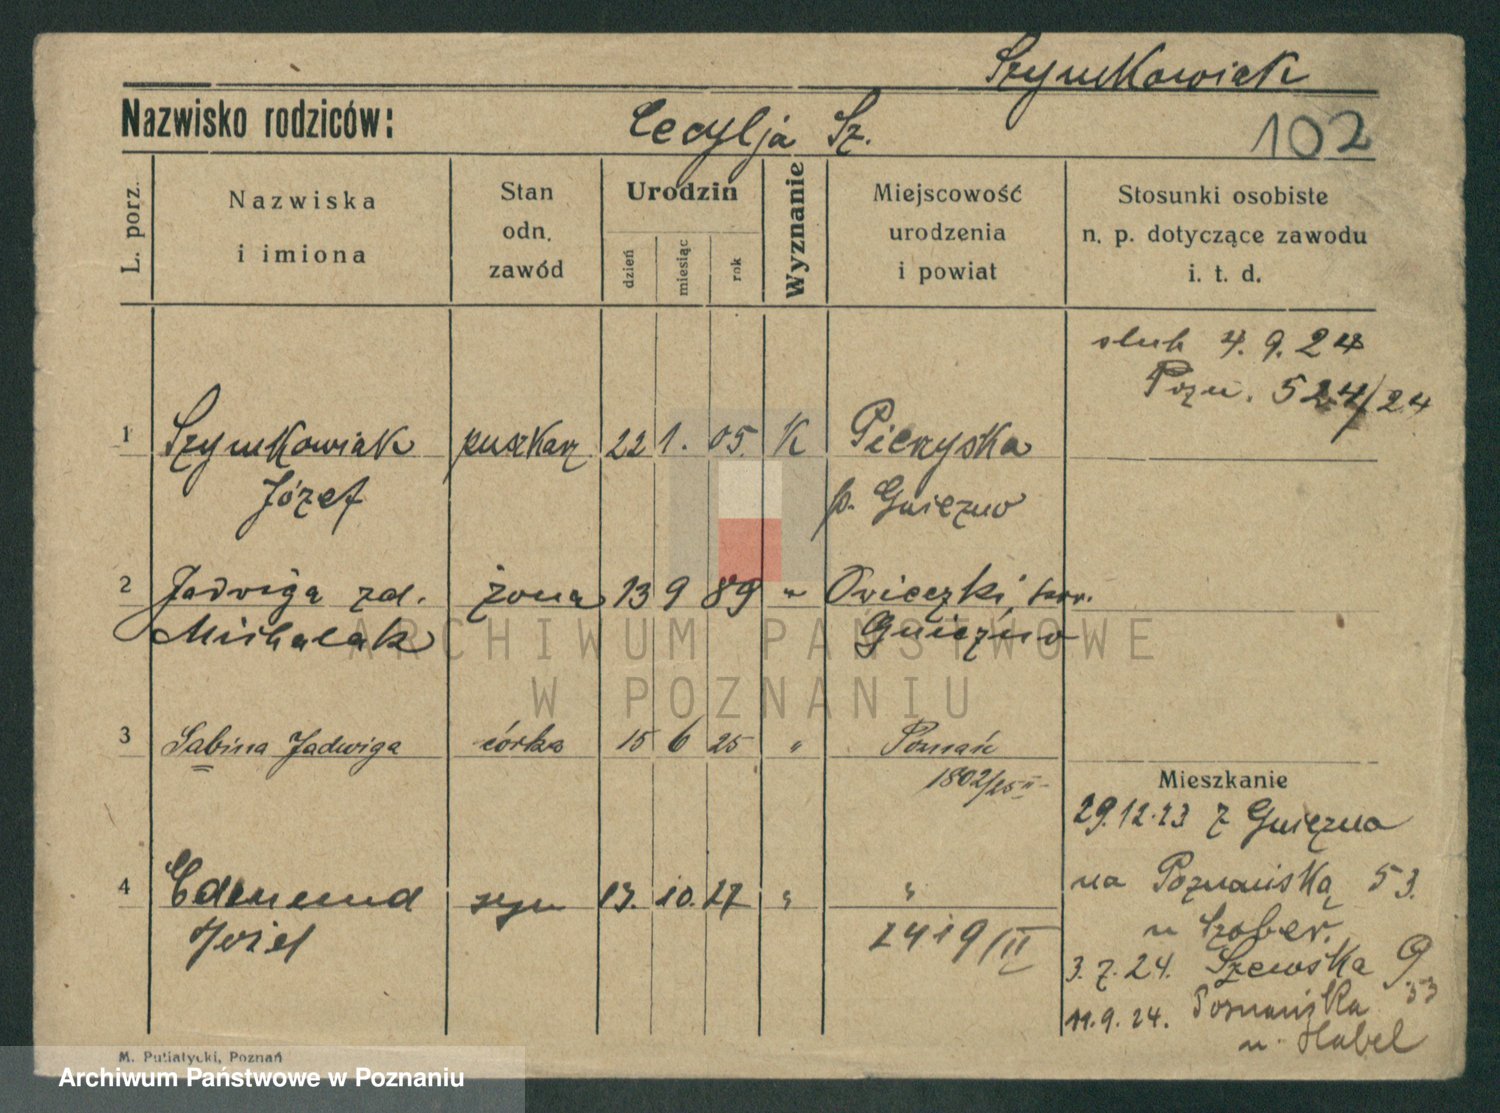 Szymkowiak
Nazwisko rodziców: Cecylja Sz. 102
L. porz.
Nazwiska i imiona
Stan odn. zawód
Urodzin
dzień miesiąc rok
Wyznanie
Miejscowość urodzenia i powiat
Stosunki osobiste n. p. dotyczące zawodu i. t. d.
slub 4. 9. 24
Pozn. 524/24
1 Szymkowiak puszkarz 22 1. 05. K Piekryska
Józef p. Gniezno
2 Jadwiga zd. żona 13 9 89 "
Michalak Gniezno
3 Sabina Jadwiga córka 15 6 25 " Poznań
1802/25 II
Mieszkanie
29.12.23 z Gniezna
4 Edmund syn 13. 10. 27 " "
na Poznańską 53.
Józef 2419/II
u
3. 7. 24. Szewska 9
11. 9. 24. Poznańska 53
u. Habel
M. Putiatycki, Poznań
ARCHIWUM PAŃSTWOWE
W POZNANIU
Archiwum Państwowe w Poznaniu